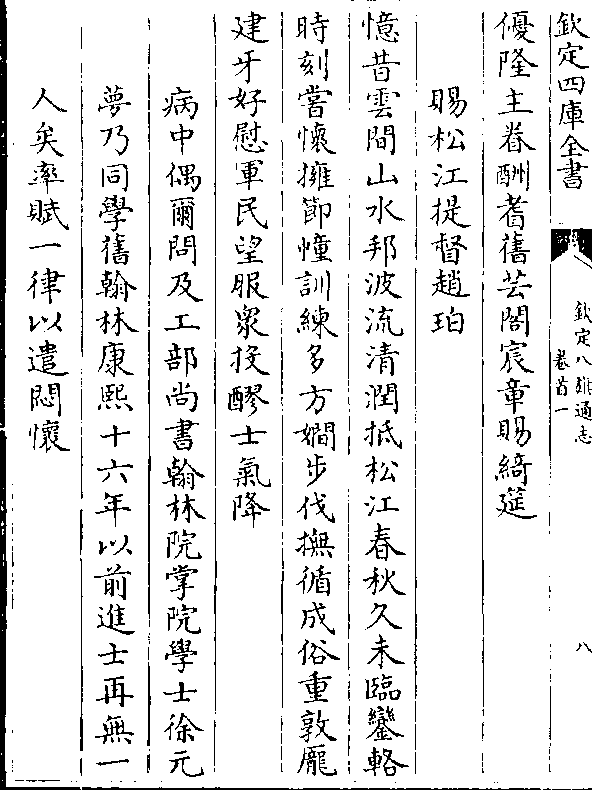 欽定四庫全書
欽定八旗通志
卷首一
八
優隆主眷酬耆舊芸閣宸章賜綺筵
賜松江提督趙珀
憶昔雲間山水邦波流清潤抵松江春秋久未臨鑾輅
時刻嘗懷擁節幢訓練多方嫺步伐撫循成俗重敦龎
建牙好慰軍民望服衆投醪士氣降
病中偶爾問及工部尚書翰林院掌院學士徐元
夢乃同學舊翰林康熙十六年以前進士再無一
人矣率賦一律以遣悶懷